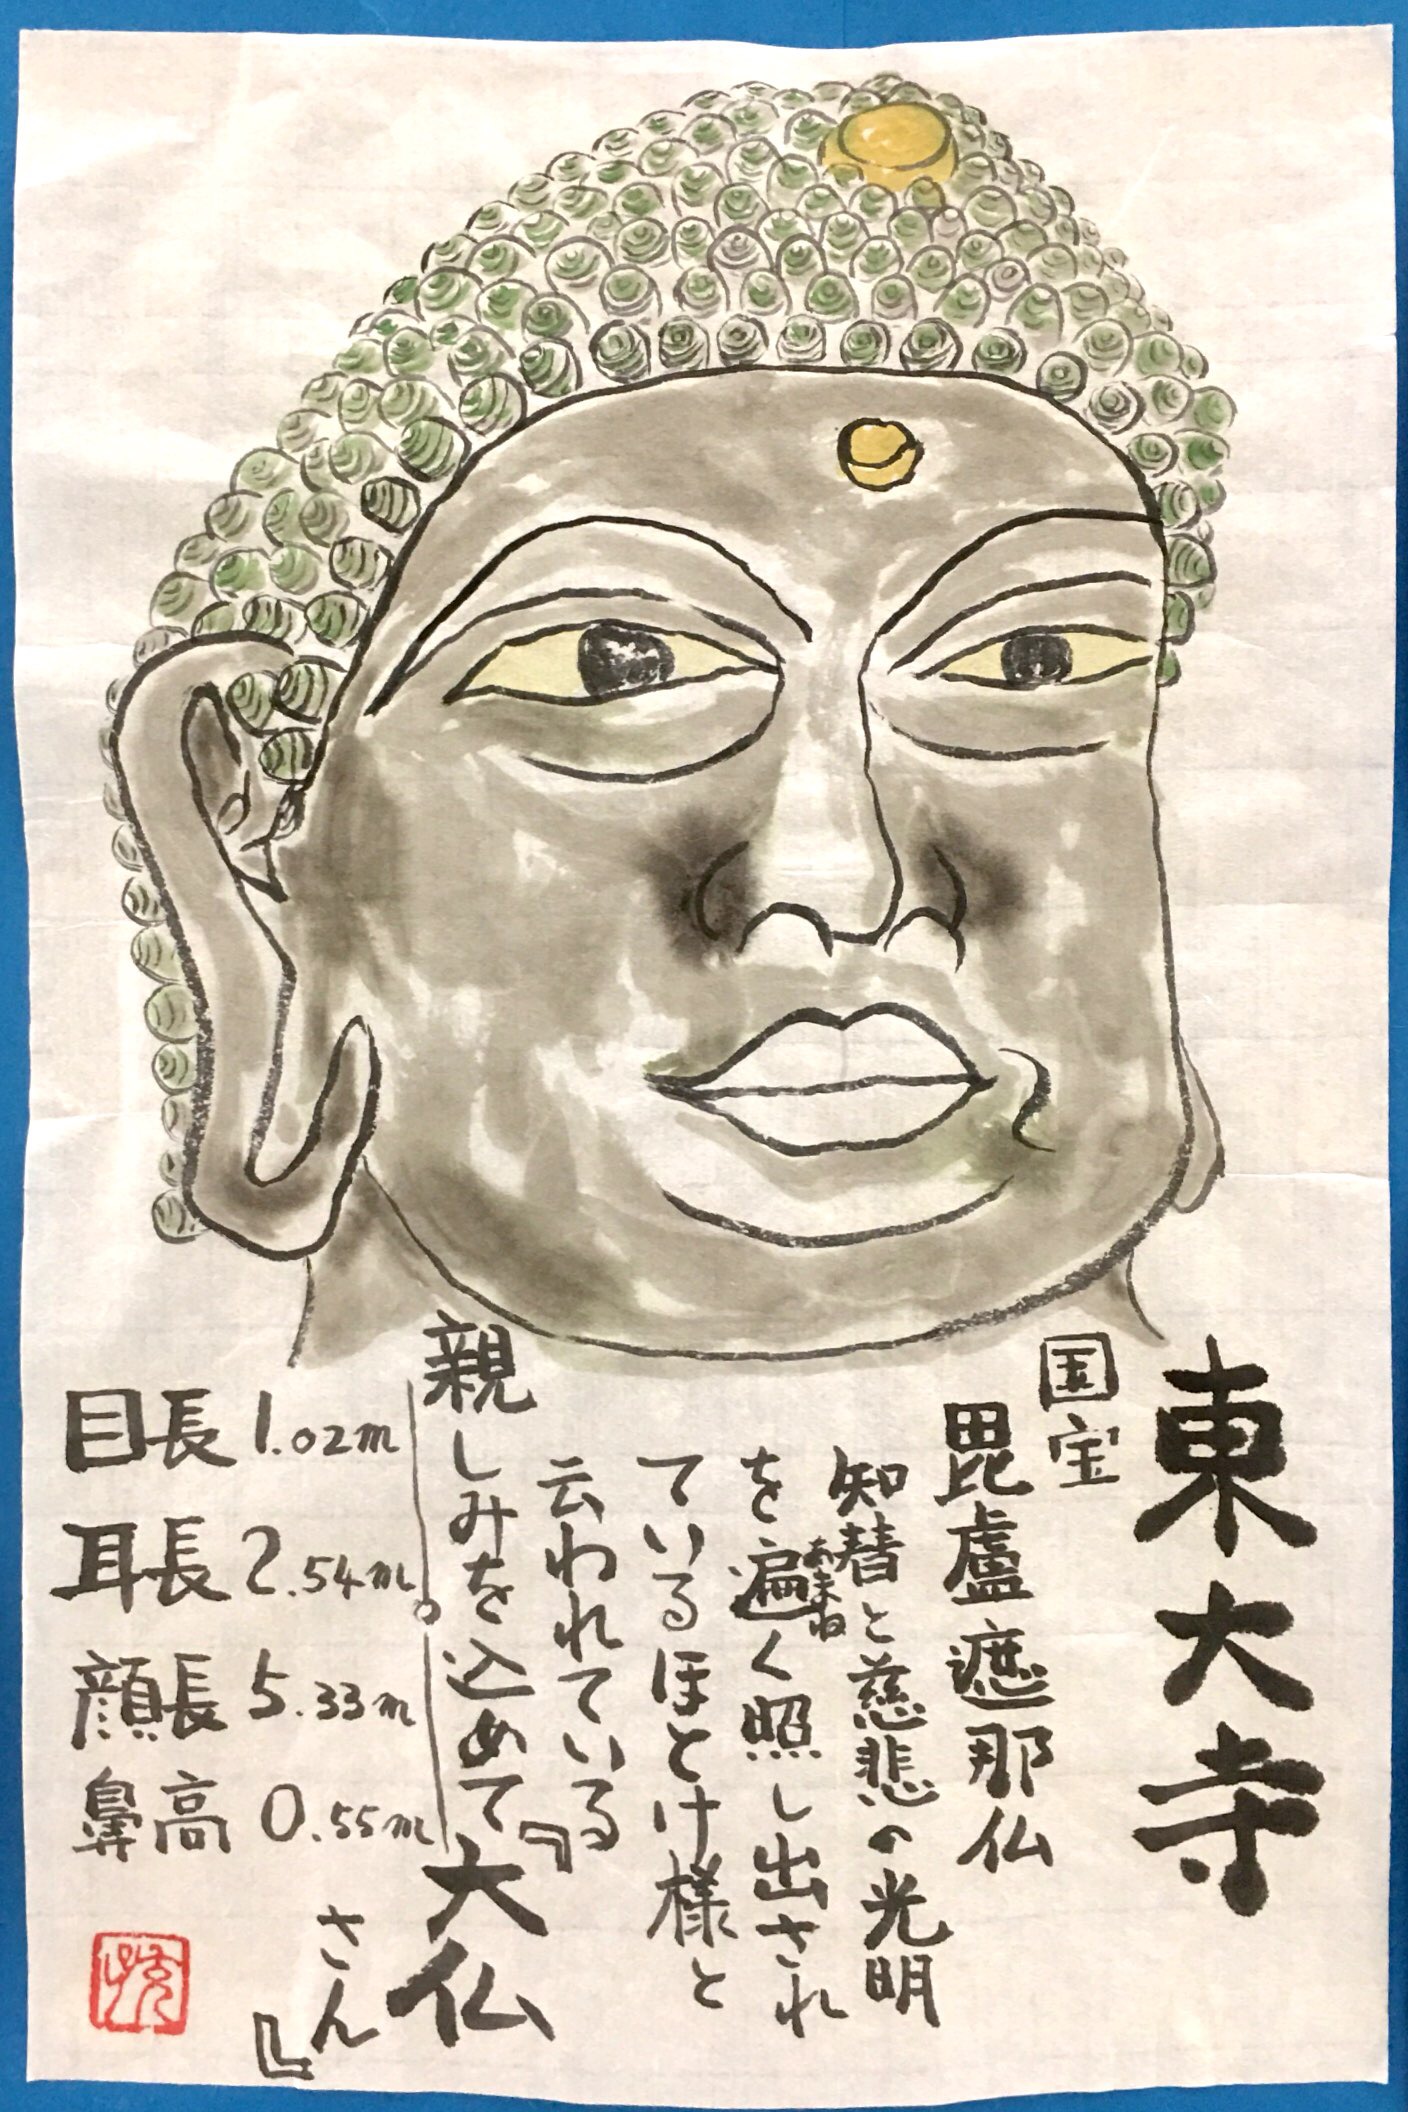 東大寺
国宝
毘盧遮那仏
知替と慈悲の光明
を遍く照し出され
あまね
ているほとけ様と
云われている
親しみを込めて『大仏
さん』
目長 1.02m
耳長 2.54m
顔長 5.33m
鼻高 0.55m